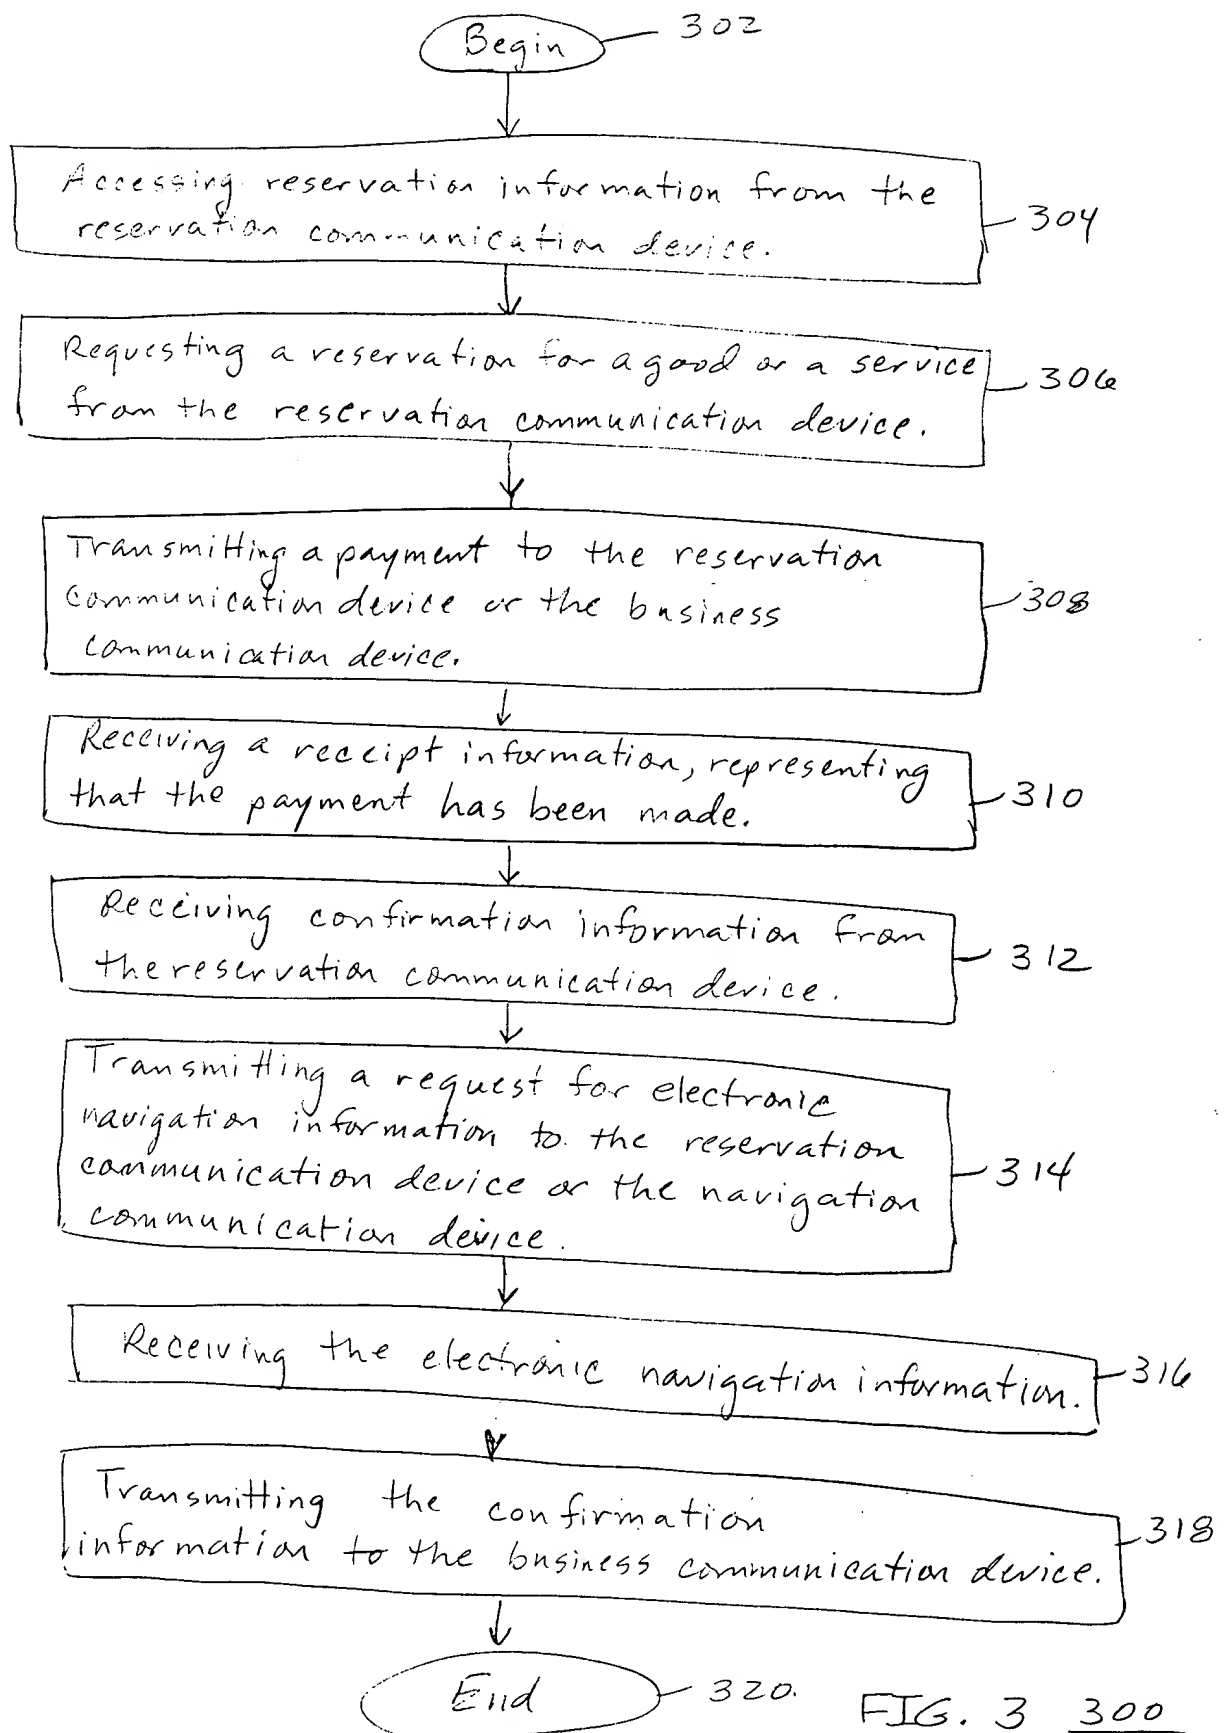 Begin 302
Accessing reservation information from the
reservation communication device.
304
Requesting a reservation for a good or a service
from the reservation communication device.
306
Transmitting a payment to the reservation
communication device or the business
communication device.
308
Receiving a receipt information, representing
that the payment has been made.
310
Receiving confirmation information from
the reservation communication device.
312
Transmitting a request for electronic
navigation information to the reservation
communication device or the navigation
communication device.
314
Receiving the electronic navigation information.
316
Transmitting the confirmation
information to the business communication device.
318
End 320.
FIG. 3 300